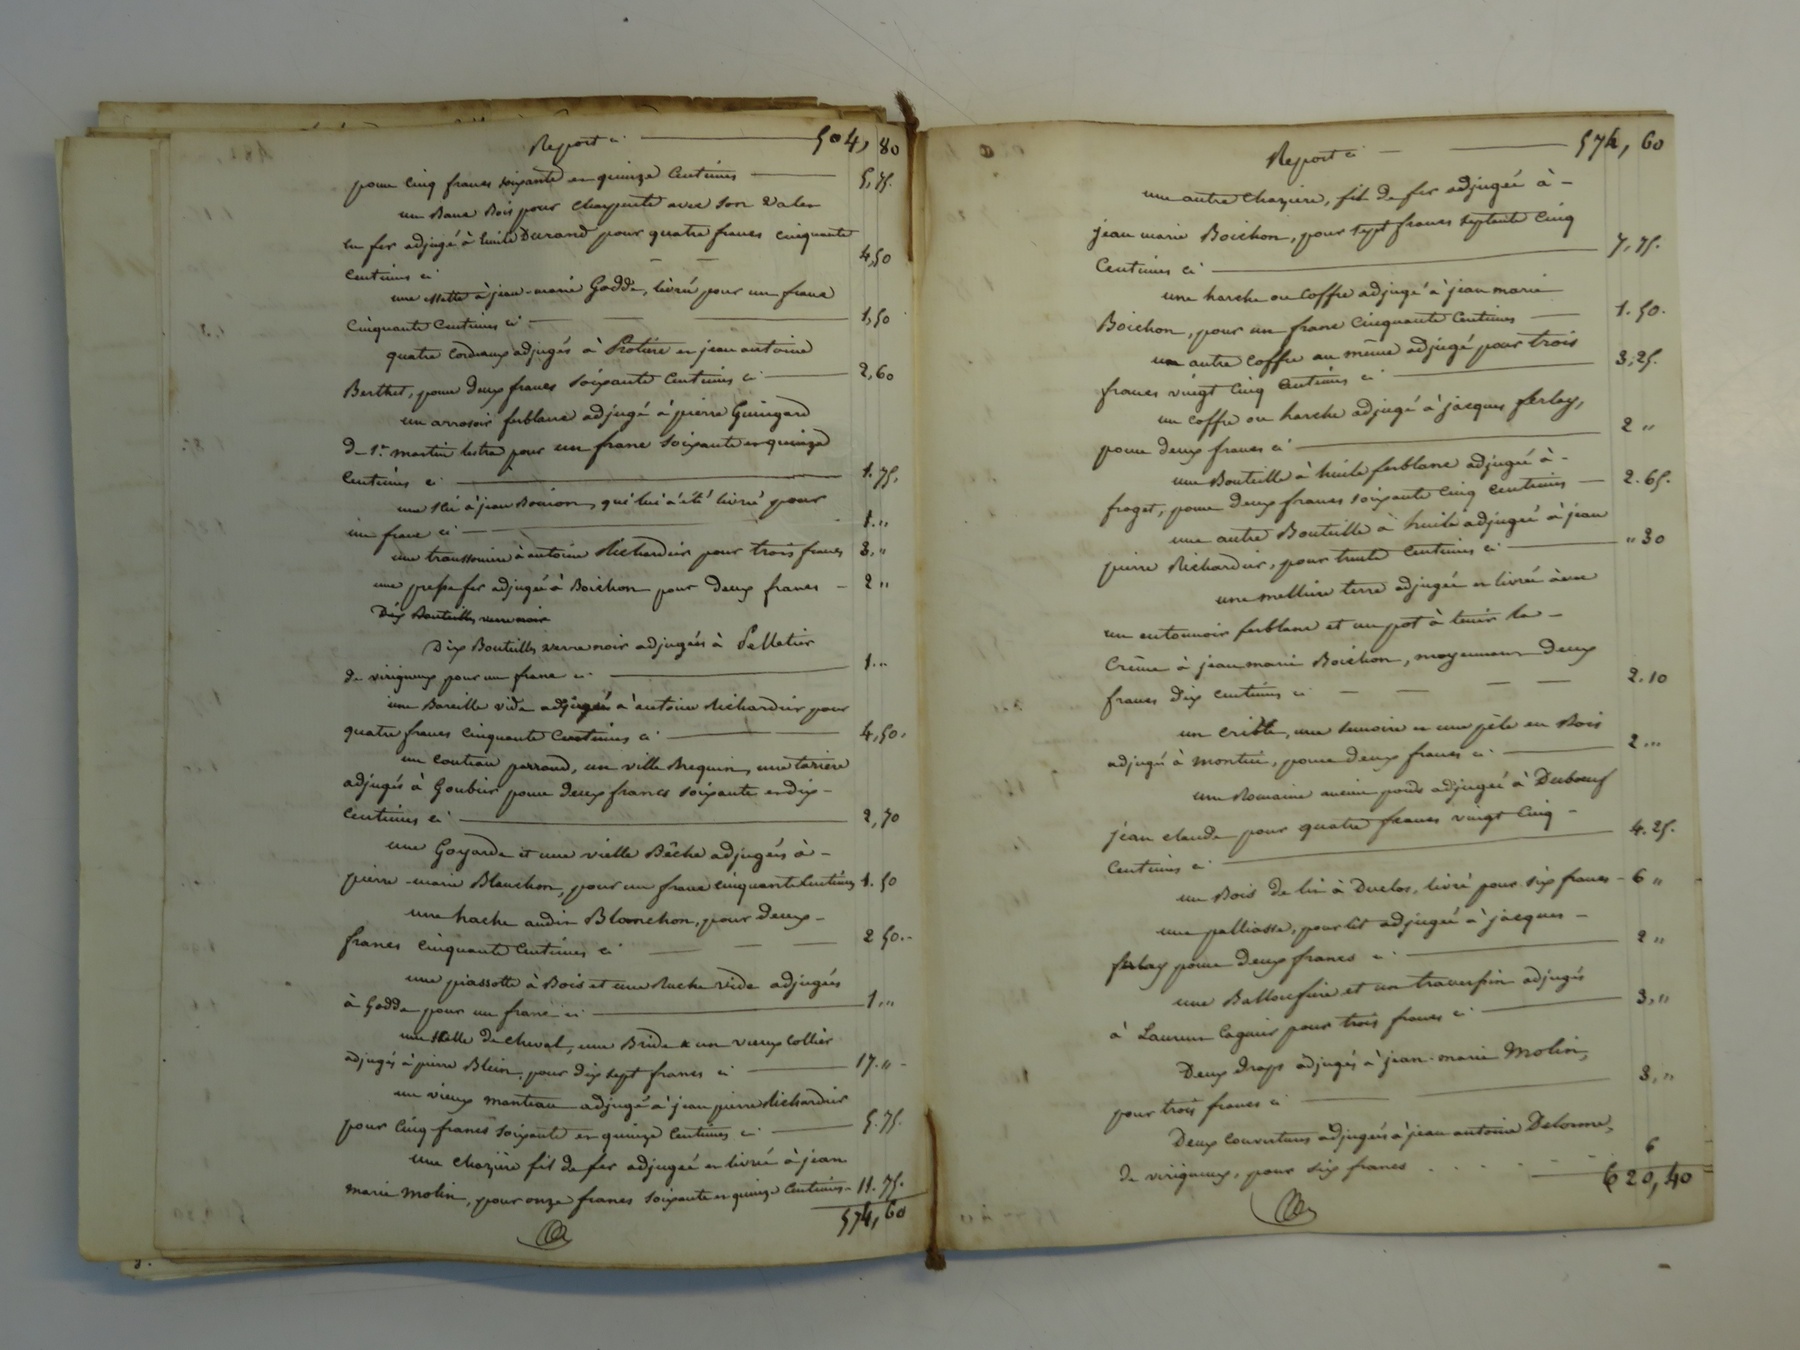 Report ci 504, 80
pour cinq francs soixante en quinze Centimes 5,75.
un Banc Bois pour charpente avec son valet
en fer adjugé à Emile Durand pour quatre francs cinquante
Centimes ci 4,50
une à jean-marie Godde, livrée pour un franc
Cinquante Centimes ci 1,50
quatre cordeaux adjugés à Protière en jean antoine
Berthet, pour deux francs soixante Centimes ci 2,60
un arrosoir ferblanc adjugé à pierre Guingard
de St. martin lestra pour un franc soixante en quinze
Centimes ci 1.75.
une à jean qui lui a été livré pour
un franc ci 1. "
une à antoine Richardier pour trois francs 3, "
une presse fer adjugée à Boichon pour deux francs - 2 "
Dix Bouteilles verre noir
Dix Bouteilles verre noir adjugées à Pelletier
de virigneux pour un franc ci 1. "
une Bareille vide adjugée à antoine Richardier pour
quatre francs cinquante Centimes ci 4,50.
un couteau parroud, un ville Brequin, une tarière
adjugés à Goubier pour deux francs soixante en dix-
Centimes ci 2,70
une Goyarde et une vielle Bêche adjugés à -
pierre-marie Blanchon, pour un franc cinquante Centimes 1.50
une hache audit Blanchon, pour deux-
francs cinquante Centimes ci 2 50.
une piassotte à Bois et une Ruche vide adjugées
à Godde pour un franc ci 1 "
une selle de cheval, une Bride & un vieux collier
adjugés à pierre Blein, pour dix sept francs ci 17. " -
un vieux manteau adjugé à jean pierre Richardier
pour Cinq francs soixante en quinze Centimes ci 5.75.
une chazière fil de fer adjugée en livrée à jean
marie Molin, pour onze francs soixante en quinze Centimes - 11.75.
574,60
Report ci 574, 60
une autre chazière, fil de fer adjugée à -
jean marie Boichon, pour sept francs septente Cinq
Centimes ci 7,75.
une harche ou Coffre adjugé à jean marie
Boichon, pour un franc Cinquante Centimes 1.50.
un autre Coffre au même adjugé pour trois
francs vingt Cinq Centimes ci 3,25.
un Coffre ou harche adjugé à jacques ferlay,
pour deux francs ci 2 "
une Bouteille à huile ferblanc adjugée à -
froget, pour deux francs soixante Cinq Centimes 2.65.
une autre Bouteille à huile adjugée à jean
pierre Richardier, pour trente Centimes ci " 30
une terre adjugée en livrée avec
un entonnoir ferblanc et un pot à tenir la -
Crème à jean marie Boichon, moyennant deux
francs dix centimes ci 2.10
un crible, une en une pèle en Bois
adjugé à montin, pour deux francs ci 2 "
une Romaine ancien poids adjugée à Duboeuf
jean claude pour quatre francs vingt Cinq -
Centimes ci 4.25.
un Bois de lit à Duclos, livré pour six francs - 6 "
une palliasse, pour lit adjugée à jacques -
ferlay pour deux francs ci 2 "
une Balloufière et un traversin adjugés
à Laurent pour trois francs ci 3, "
Deux draps adjugés à jean-marie Molin,
pour trois francs ci 3, "
Deux Couvertures adjugées à jean antoine Delorme,
de virigneux, pour six francs 6
620,40